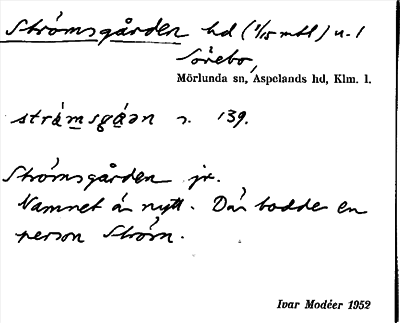 Strömsgården hd (1/15 mtl) u. 1
Sörebo,
Mörlunda sn, Aspelands hd, Klm. l.
strámsgá̱ən s. 139.
Strömsgården jr.
Namnet är nytt. Där bodde en
person Ström.
Ivar Modéer 1952